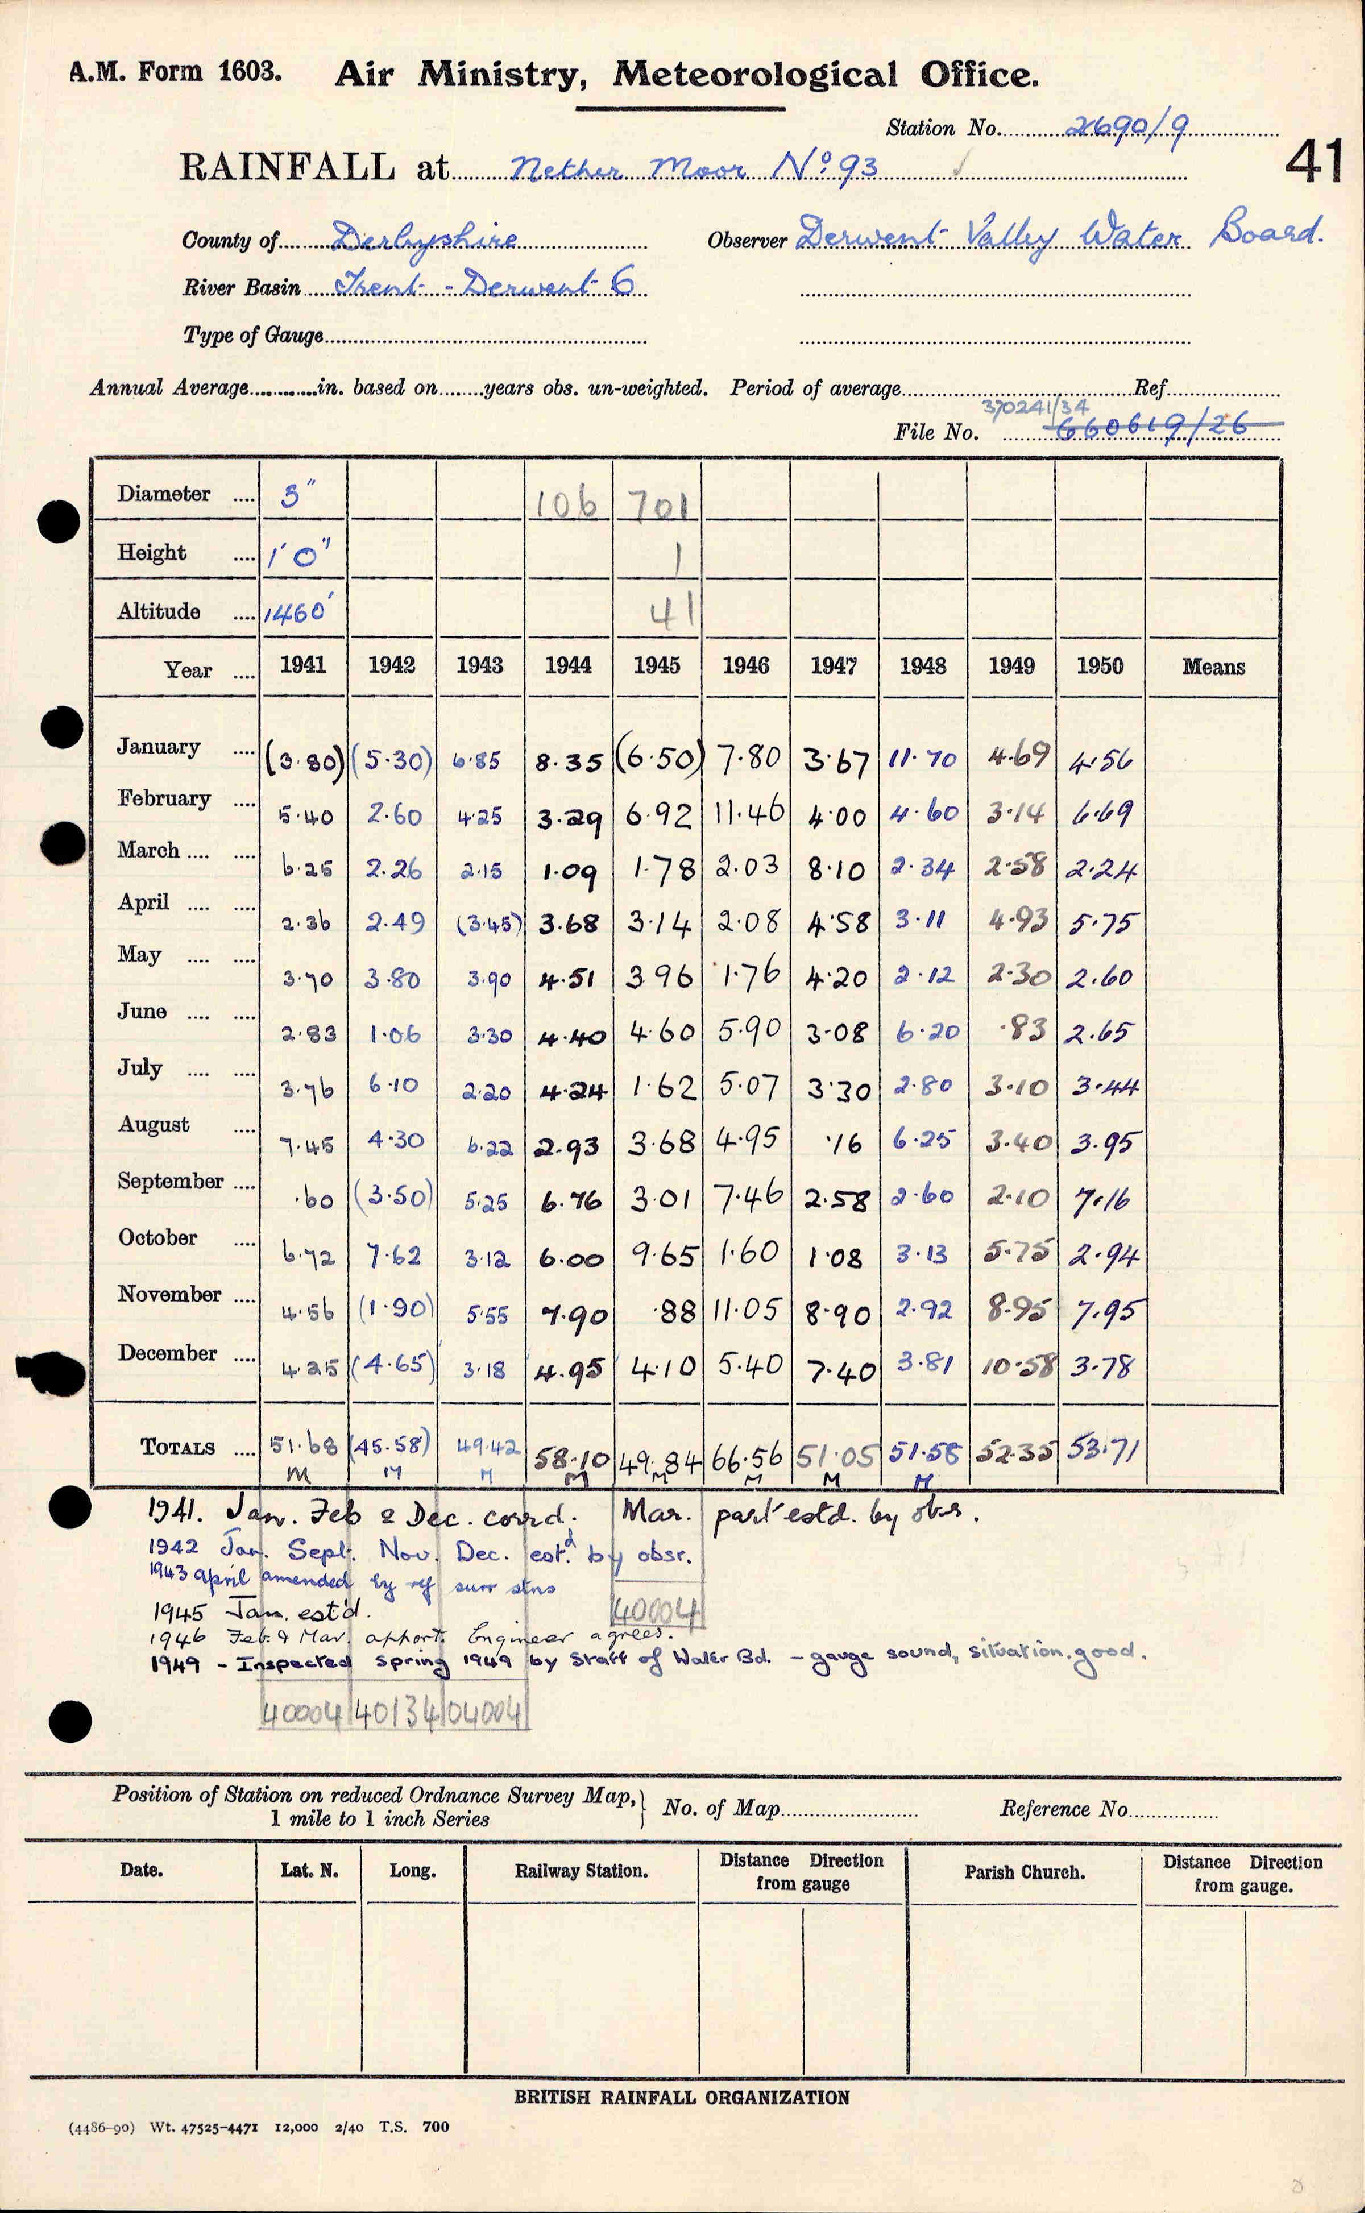 A.M. Form 1603. Air Ministry, Meteorological Office.
Station No. 2690/9
41
RAINFALL at Nether Moor No. 93
County of Derbyshire Observer Derwent Valley Water Board.
River Basin Trent - Derwent 6
Type of Gauge
Annual Average in. based on years obs. un-weighted. Period of average Ref.
370241/34
File No. 660619/26
Diameter 5" 106 701
Height 1'0" 1
Altitude 1460' 41
Year 1941 1942 1943 1944 1945 1946 1947 1948 1949 1950 Means
January (3.80) (5.30) 6.85 8.35 (6.50) 7.80 3.67 11.70 4.69 4.56
February 5.40 2.60 4.25 3.29 6.92 11.46 4.00 4.60 3.14 6.69
March 6.25 2.26 2.15 1.09 1.78 2.03 8.10 2.34 2.58 2.24
April 2.36 2.49 (3.45) 3.68 3.14 2.08 4.58 3.11 4.93 5.75
May 3.70 3.80 3.90 4.51 3.96 1.76 4.20 2.12 2.30 2.60
June 2.83 1.06 3.30 4.40 4.60 5.90 3.08 6.20 .83 2.65
July 3.76 6.10 2.20 4.24 1.62 5.07 3.30 2.80 3.10 3.44
August 7.45 4.30 6.22 2.93 3.68 4.95 .16 6.25 3.40 3.95
September .60 (3.50) 5.25 6.76 3.01 7.46 2.58 2.60 2.10 7.16
October 6.72 7.62 3.12 6.00 9.65 1.60 1.08 3.13 5.75 2.94
November 4.56 (1.90) 5.55 7.90 .88 11.05 8.90 2.92 8.95 7.95
December 4.25 (4.65) 3.18 4.95 4.10 5.40 7.40 3.81 10.58 3.78
TOTALS 51.68 (45.58) 49.42 58.10 49.84 66.56 51.05 51.58 52.35 53.71
M M M M M M M M
1941. Jan. Feb & Dec. corrd. Mar. part estd. by obs.
1942 Jan. Sept. Nov. Dec. estd. by obsr.
1943 april amended by ref surr stns
1945 Jan. est'd. 40004
1946 Feb. & Mar. apport. Engineer agrees.
1949 - Inspected Spring 1949 by Staff of Water Bd. - gauge sound, situation good.
40004 40134 04004
Position of Station on reduced Ordnance Survey Map, 1 mile to 1 inch Series No. of Map Reference No.
Date. Lat. N. Long. Railway Station. Distance Direction from gauge Parish Church. Distance Direction from gauge.
BRITISH RAINFALL ORGANIZATION
(4486-90) Wt. 47525-4471 12,000 2/40 T.S. 700